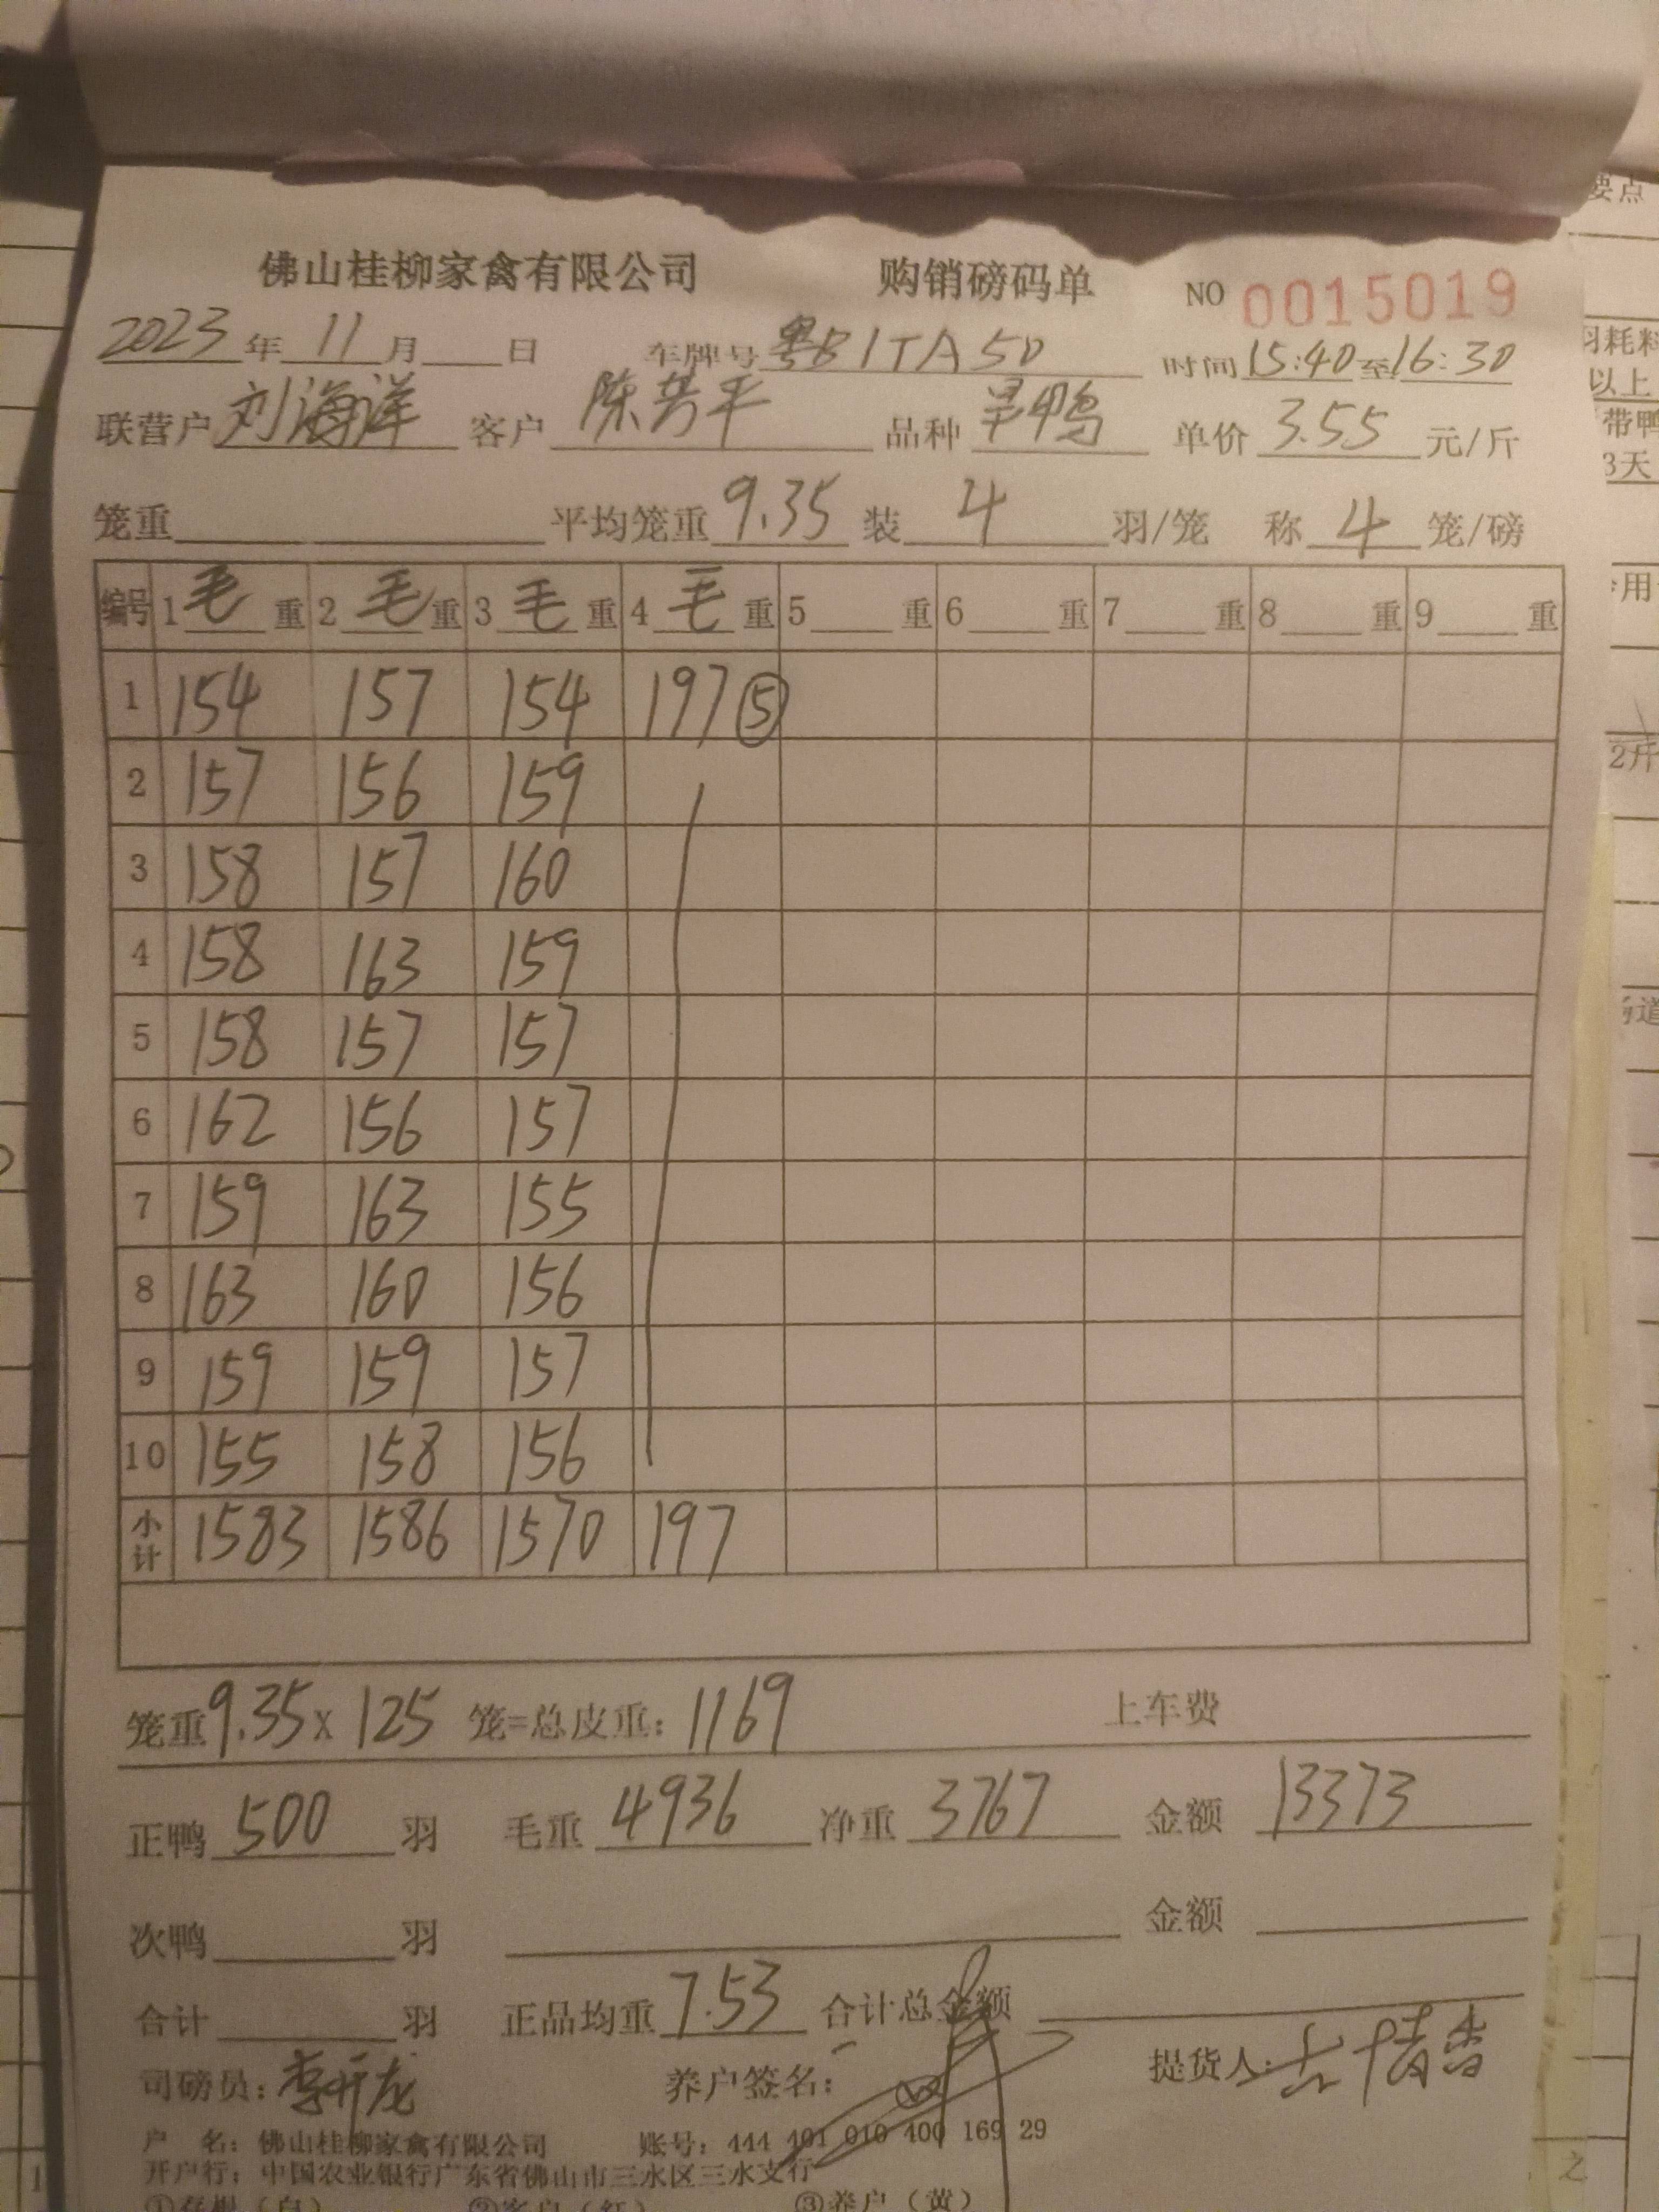 佛山桂柳家禽有限公司 购销磅码单 NO 0015019
2023年11月 日 车牌号粤B1TA50 时间15:40至16:30
联营户刘海洋 客户陈芳平 品种 单价3.55元/斤
笼重 平均笼重9.35 装4羽/笼 称4笼/磅
编号 1毛重 2毛重 3毛重 4毛重 5 重 6 重 7 重 8 重 9 重
1 154 157 154 197⑤
2 157 156 159
3 158 157 160
4 158 163 159
5 158 157 157
6 162 156 157
7 159 163 155
8 163 160 156
9 159 159 157
10 155 158 156
小计 1583 1586 1570 197
笼重9.35x125笼=总皮重:1169 上车费
正鸭500羽 毛重4936 净重3767 金额13373
次鸭 羽 金额
合计 羽 正品均重7.53 合计总金额
司磅员:李开龙 养户签名: 提货人:
户 名:佛山桂柳家禽有限公司 账号:444 401 010 400 169 29
开户行:中国农业银行广东省佛山市三水区三水支行
①存根(白) ②客户(红) ③养户(黄)
要点
羽耗料
以上
带鸭
3天
用
2斤
场道
之